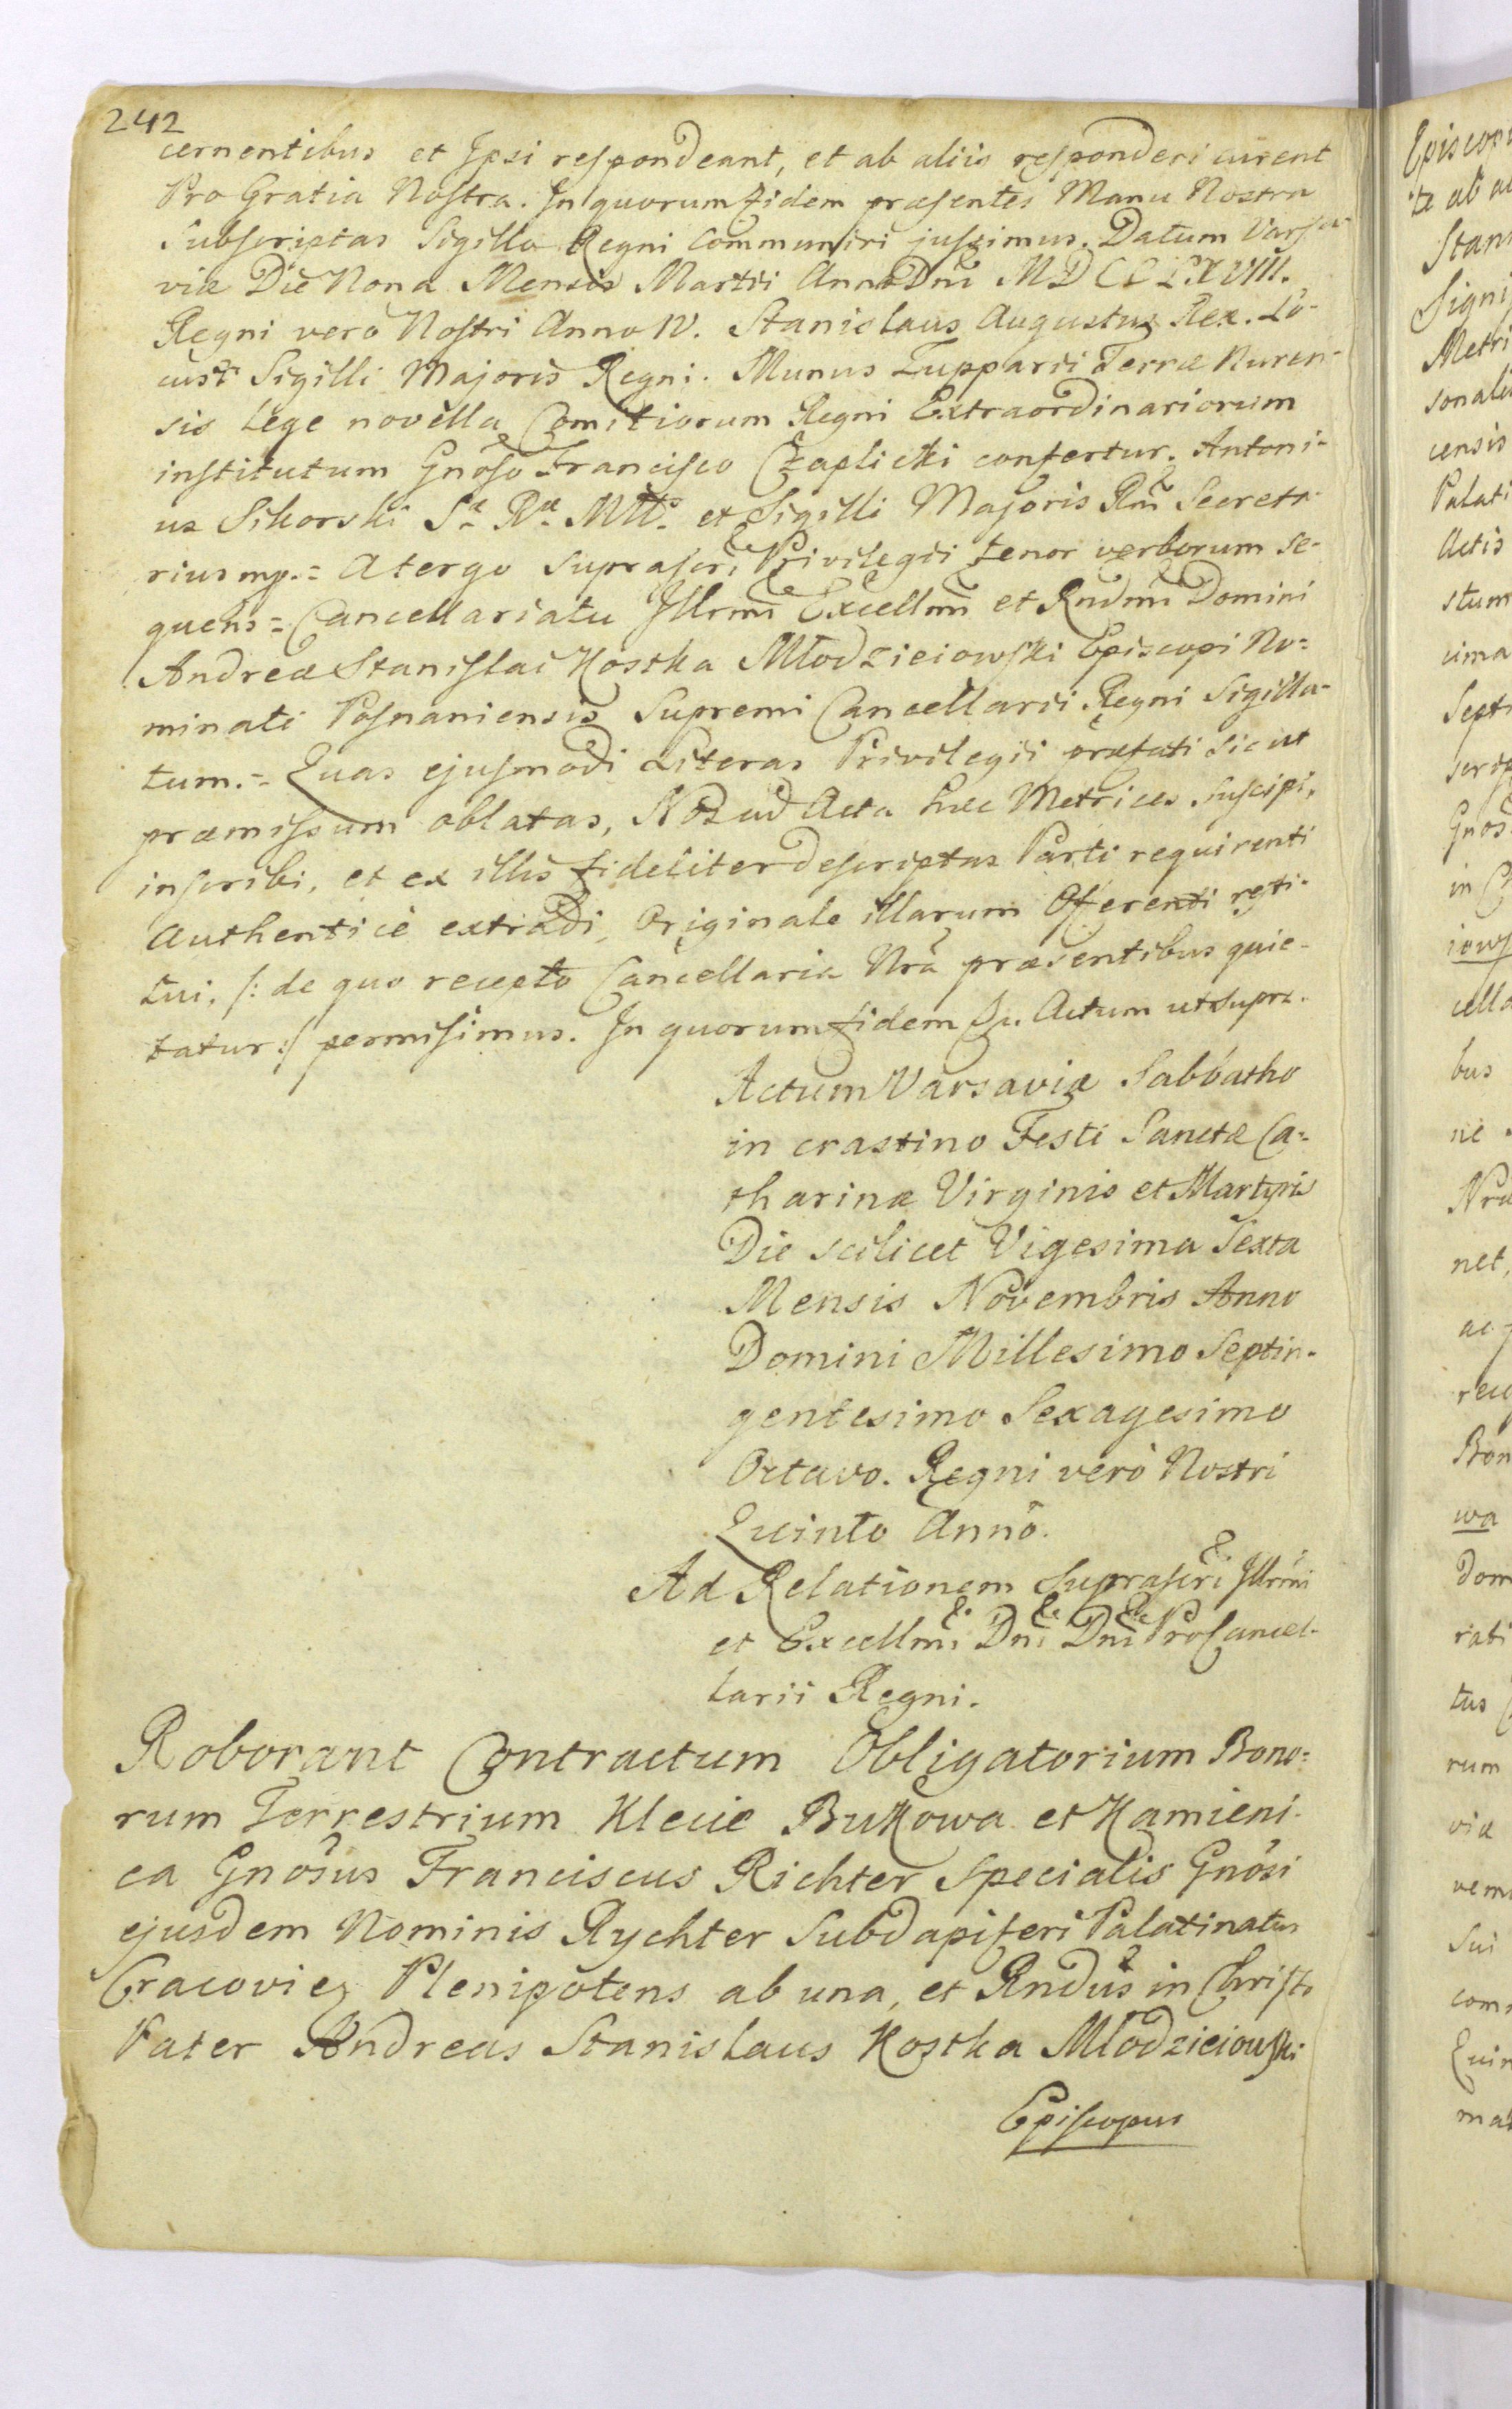 242
cernentibus et Ipsi respondeant, et ab aliis responderi curent
Pro Gratia Nostra. In quorum fidem præsentes Manu Nostra
Subscriptas Sigillo Regni Communiri jussimus. Datum Varsa-
viæ Die Nona Mensis Martii Anno Dni MDCCLXVIII.
Regni vero Nostri Anno IV. Stanislaus Augustus Rex. Lo-
cus Sigilli Majoris Regni. Munus Zupparii Terræ Nuren-
sis Lege novella Comitiorum Regni Extraordinariorum
institutum Gnoso Francisco Czaplicki confertur. Antoni-
us Sikorski Sæ Ræ Mttis et Sigilli Majoris Rni Secreta-
rius mp. = A tergo suprascri Privilegii tenor verborum se-
quens = Cancellariatu Illrmi Excellmi et Rndmi Domini
Andreæ Stanislai Kostka Młodzieiowski Episcopi No-
minati Posnaniensis Supremi Cancellarii Regni Sigilla-
tum. = Quas ejusmodi Literas Privilegii præfati sicut
præmissum oblatas, Nos ad Acta hæc Metrices suscipi,
inscribi, et ex illis fideliter descriptas Parti requirenti
Authenticè extradi, Originale illarum Oferenti resti-
tui, /: de quo recepto Cancellaria Nra præsentibus quie-
tatur :/ permisimus. In quorum fidem Actum ut supra.
Actum Varsaviæ Sabbatho
in crastino Festi Sanctæ Ca-
tharinæ Virginis et Martyris
Die scilicet Vigesima Sexta
Mensis Novembris Anno
Domini Millesimo Septin-
gentesimo Sexagesimo
Octavo. Regni verò Nostri
Quinto Anno.
Ad Relationem Suprascri Illrmi
et Excellmi Dni Dni ProCancel-
larii Regni.
Roborant Contractum Obligatorium Bono-
rum Terrestrium Klecie Bukowa et Kamieni-
ca Gnosus Franciscus Richter Specialis Gnosi
ejusdem Nominis Rychter Subdapiferi Palatinatus
Cracovien Plenipotens ab una, et Rndus in Christo
Pater Andreas Stanislaus Kostka Młodzieiowski
Episcopus
Episcopi
Stan
Signi
Metri
sonali
censis
Palati
Actis
stum
cima
Septi
scrip
Gnos
in
iows
cella
bus
ne
Nra
net,
ac
Bon
wa
dom
rati
tus
rum
viæ
vem
sui
com
Quin
mal